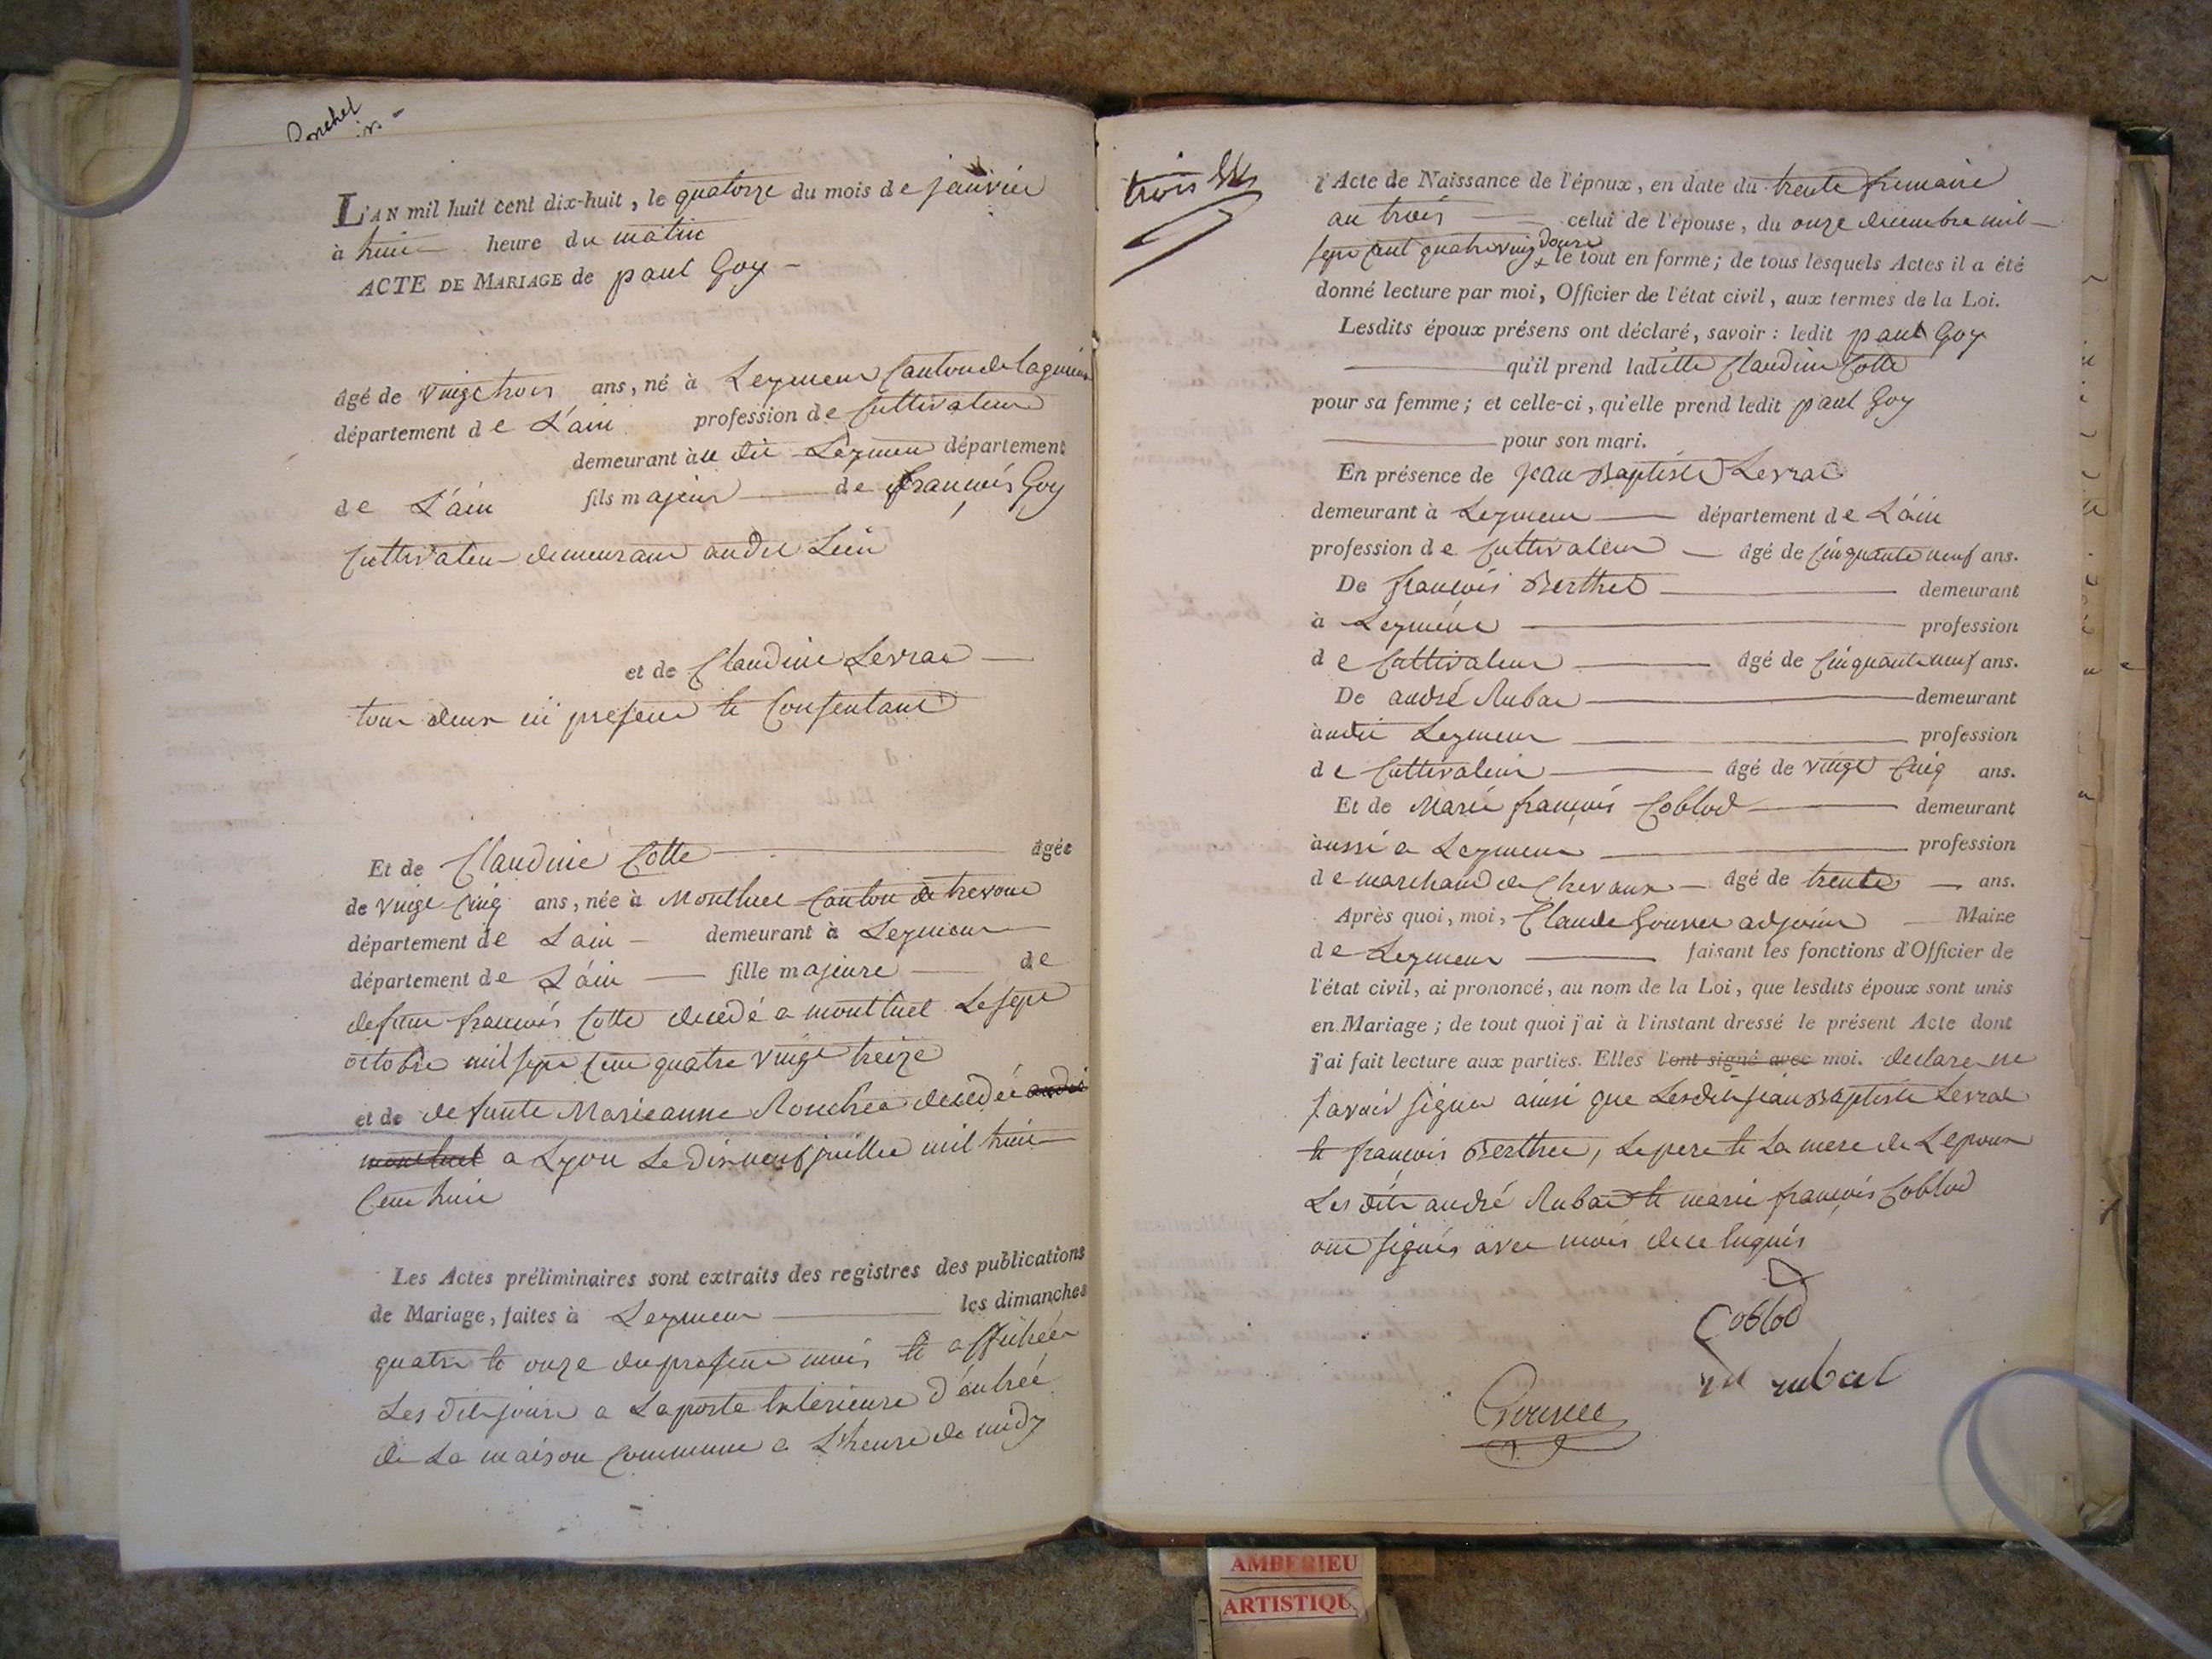 L'AN mil huit cent dix-huit, le quatorze du mois de janvier
à huit heure du matin
ACTE DE MARIAGE de paul Goy
âgé de vingt trois ans, né à Leymens Canton de lagnieu
département de L'ain profession de Cultivateur
demeurant à u dit Leymen département
de L'ain fils majeur de françois Goy
Cultivateur demeurant au dit Lieu
et de Claudine Levrat
tous deux ici present et Consentant
Et de Claudine Cotte âgée
de vingt Cinq ans, née à Montluel Canton de trevoux
département de L'ain demeurant à Leymens
département de L'ain fille majeure de
defunt françois Cotte decedé a montluel Le sept
octobre mil sept Cent quatre vingt treize
et de defunte Marieanne decedée au dit
montluel a Lyon Le dix neuf juillet mil huit
Cent huit
Les Actes préliminaires sont extraits des registres des publications
de Mariage, faites à Leymens les dimanches
quatre et onze du present mois et affichées
Les dits jours a La porte Interieure d'entrée
de La maison Commune a L'heure de midy
trois
l'Acte de Naissance de l'époux, en date du trente frimaire
an trois celui de l'épouse, du onze decembre mil
sept Cent quatre vingt douze le tout en forme; de tous lesquels Actes il a été
donné lecture par moi, Officier de l'état civil, aux termes de la Loi.
Lesdits époux présens ont déclaré, savoir: ledit paul Goy
qu'il prend ladite Claudine Cotte
pour sa femme; et celle-ci, qu'elle prend ledit paul Goy
pour son mari.
En présence de Jean Baptiste Levrat
demeurant à Leymens département de L'ain
profession de Cultivateur âgé de Cinquante neuf ans.
De françois Berthet demeurant
à Leymens profession
de Cultivateur âgé de Cinquante neuf ans.
De andré Rubat demeurant
à u dit Leymens profession
de Cultivateur âgé de vingt Cinq ans.
Et de Marie françois Coblod demeurant
à ussi a Leymens profession
de marchand de Chevaux âgé de trente ans.
Après quoi, moi, Claude adjoint Maire
de Leymens faisant les fonctions d'Officier de
l'état civil, ai prononcé, au nom de la Loi, que lesdits époux sont unis
en Mariage; de tout quoi j'ai à l'instant dressé le présent Acte dont
j'ai fait lecture aux parties. Elles l'ont signé avec moi. declare ne
savoir signer ainsi que Lesdits jean Baptiste Levrat
et françois Berthet, Le pere et La mere de L'epoux
Les dits andré Rubat et marie françois Coblod
ont signés avec mois de ce
Coblod
rubat
AMBERIEU
ARTISTIQU